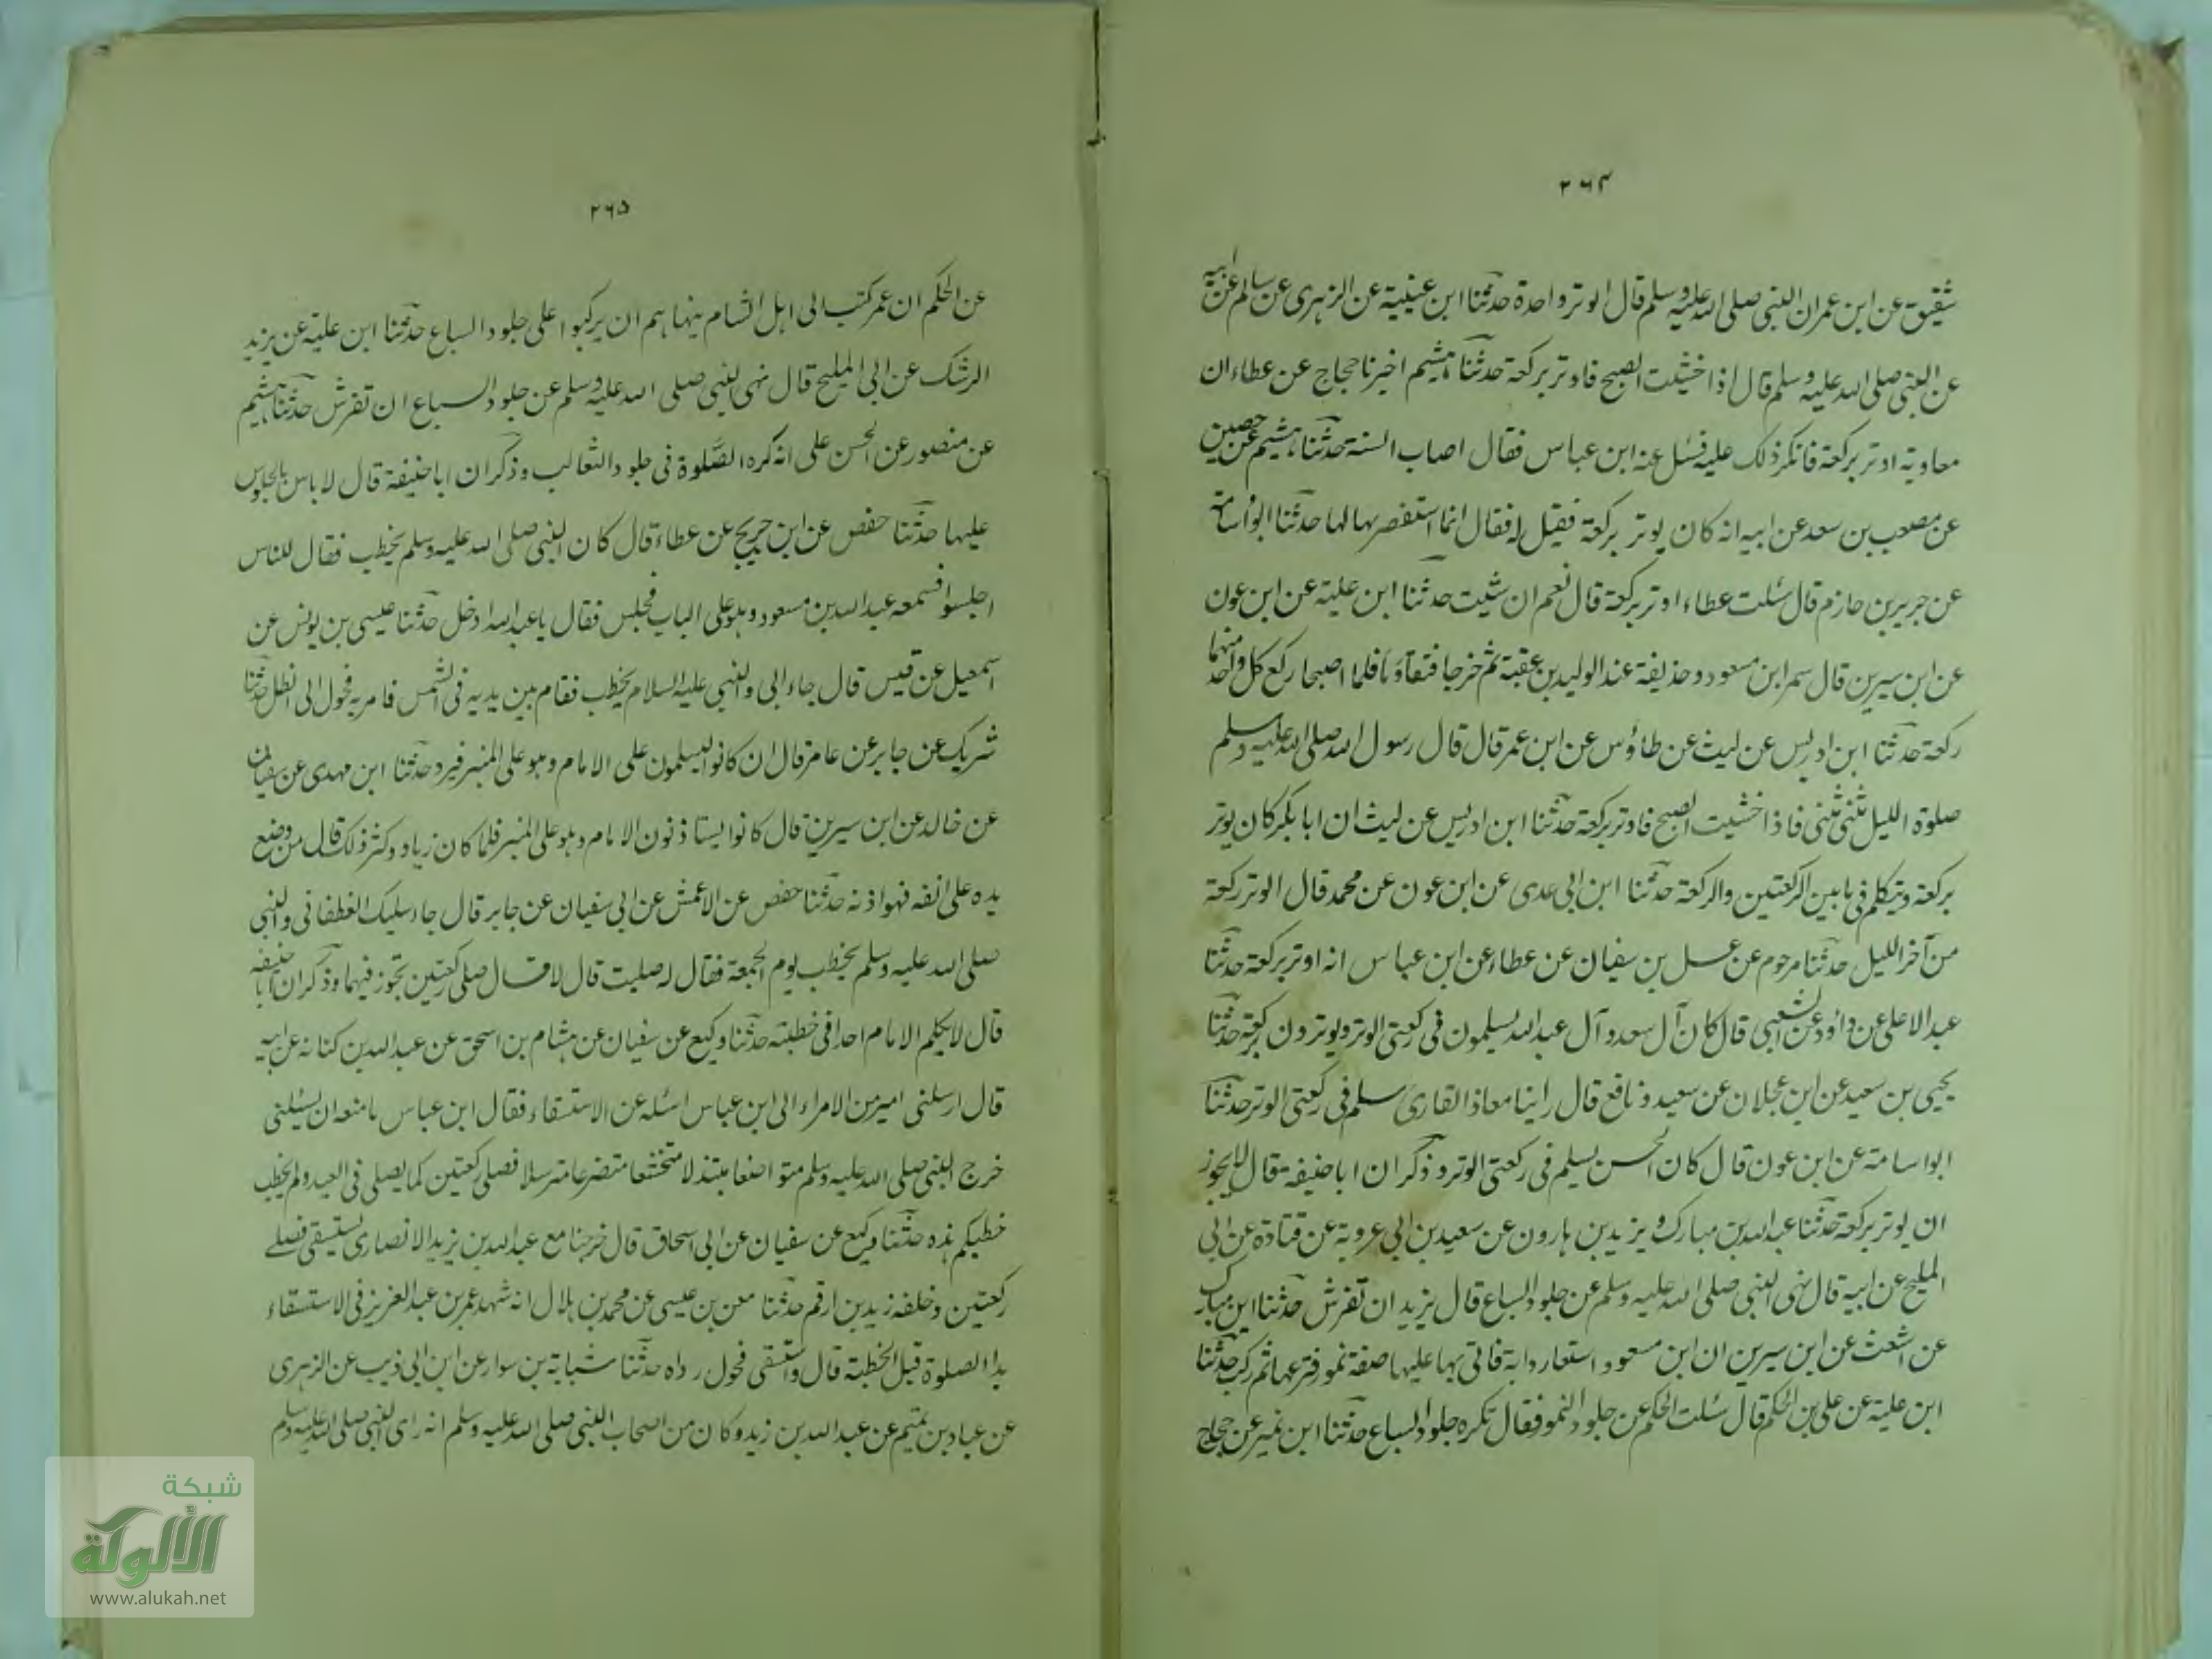 ٢٦٤
شقيق عن ابن عمر ان النبى صلى الله عليه وسلم قال الوتر واحدة حدثنا ابن عيينة عن الزهرى عن سالم عن ابيه
عن النبى صلى الله عليه وسلم قال اذا خشيت الصبح فاوتر بركعة حدثنا هشيم اخبرنا حجاج عن عطاء ان
معاوية اوتر بركعة فانكر ذلك عليه فسئل عنه ابن عباس فقال اصاب السنة حدثنا هشيم عن حصين
عن مصعب بن سعد عن ابيه انه كان يوتر بركعة فقيل له فقال انما استقصر بها لها حدثنا ابو اسامة
عن جرير بن حازم قال سئلت عطاء اوتر بركعة قال نعم ان شئت حدثنا ابن علية عن ابن عون
عن ابن سيرين قال سمر ابن مسعود وحذيفة عند الوليد بن عقبة ثم خرجا فتقاوما فلما اصبحا ركع كل واحد منهما
ركعة حدثنا ابن ادريس عن ليث عن طاؤس عن ابن عمر قال قال رسول الله صلى الله عليه وسلم
صلوة الليل مثنى مثنى فاذا خشيت الصبح فاوتر بركعة حدثنا ابن ادريس عن ليث ان ابا بكر كان يوتر
بركعة ويتكلم فى ما بين الركعتين والركعة حدثنا ابن ابى عدى عن ابن عون عن محمد قال الوتر ركعة
من آخر الليل حدثنا مرحوم عن عسل بن سفيان عن عطاء عن ابن عباس انه اوتر بركعة حدثنا
عبد الاعلى عن داؤد عن الشعبى قال كان آل سعد وآل عبد الله يسلمون فى ركعتى الوتر ويوترون بركعة حدثنا
يحيى بن سعيد عن ابن عجلان عن سعيد ونافع قال راينا معاذا القارى سلم فى ركعتى الوتر حدثنا
ابو اسامة عن ابن عون قال كان الحسن يسلم فى ركعتى الوتر وذكر ان ابا حنيفة قال لا يجوز
ان يوتر بركعة حدثنا عبد الله بن مبارك ويزيد بن هارون عن سعيد بن ابى عروبة عن قتادة عن ابى
المليح عن ابيه قال نهى النبى صلى الله عليه وسلم عن جلود السباع قال يزيد ان تفرش حدثنا ابن مبارك
عن اشعث عن ابن سيرين ان ابن مسعود استعار دابة فاتى بها عليها صفة نمور فنزعها ثم ركب حدثنا
ابن علية عن على بن الحكم قال سئلت الحكم عن جلود النمور فقال تكره جلود السباع حدثنا ابن نمير عن حجاج
٢٦٥
عن الحكم ان عمر كتب الى اهل الشام ينهاهم ان يركبوا على جلود السباع حدثنا ابن علية عن يزيد
الرشك عن ابى المليح قال نهى النبى صلى الله عليه وسلم عن جلود السباع ان تفرش حدثنا هشيم
عن منصور عن الحسن على انه كره الصلوة فى جلود الثعالب وذكر ان ابا حنيفة قال لا باس بالجلوس
عليها حدثنا حفص عن ابن جريج عن عطاء قال كان النبى صلى الله عليه وسلم يخطب فقال للناس
اجلسوا فسمعه عبد الله بن مسعود وهو على الباب فجلس فقال يا عبد الله ادخل حدثنا عيسى بن يونس عن
اسمعيل عن قيس قال جاء ابى والنبى عليه السلام يخطب فقام بين يديه فى الشمس فامر به فحول الى الظل حدثنا
شريك عن جابر عن عامر قال ان كانوا ليسلمون على الامام وهو على المنبر فيرد حدثنا ابن مهدى عن سفيان
عن خالد عن ابن سيرين قال كانوا يستاذنون الامام وهو على المنبر فلما كان زياد وكثر ذلك قال من وضع
يده على انفه فهو اذنه حدثنا حفص عن الاعمش عن ابى سفيان عن جابر قال جاء سليك الغطفانى والنبى
صلى الله عليه وسلم يخطب يوم الجمعة فقال له صليت قال لا قال صل ركعتين تجوز فيهما وذكر ان ابا حنيفة
قال لا يكلم الامام احدا فى خطبته حدثنا وكيع عن سفيان عن هشام بن اسحق عن عبد الله بن كنانة عن ابيه
قال ارسلنى امير من الامراء الى ابن عباس اسئله عن الاستسقاء فقال ابن عباس ما منعه ان يسئلنى
خرج النبى صلى الله عليه وسلم متواضعا مبتذلا متخشعا متضرعا مترسلا فصلى ركعتين كما يصلى فى العيد ولم يخطب
خطبكم هذه حدثنا وكيع عن سفيان عن ابى اسحاق قال خرجنا مع عبد الله بن يزيد الانصارى يستسقى فصلے
ركعتين وخلفه زيد بن ارقم حدثنا معن بن عيسى عن محمد بن هلال انه شهد عمر بن عبد العزيز فى الاستسقاء
بدا الصلوة قبل الخطبة قال واستسقى فحول رداه حدثنا شبابة بن سوار عن ابن ابى ذيب عن الزهرى
عن عباد بن تميم عن عبد الله بن زيد وكان من اصحاب النبى صلى الله عليه وسلم انه راى النبى صلى الله عليه وسلم
شبكة
الألوكة
www.alukah.net